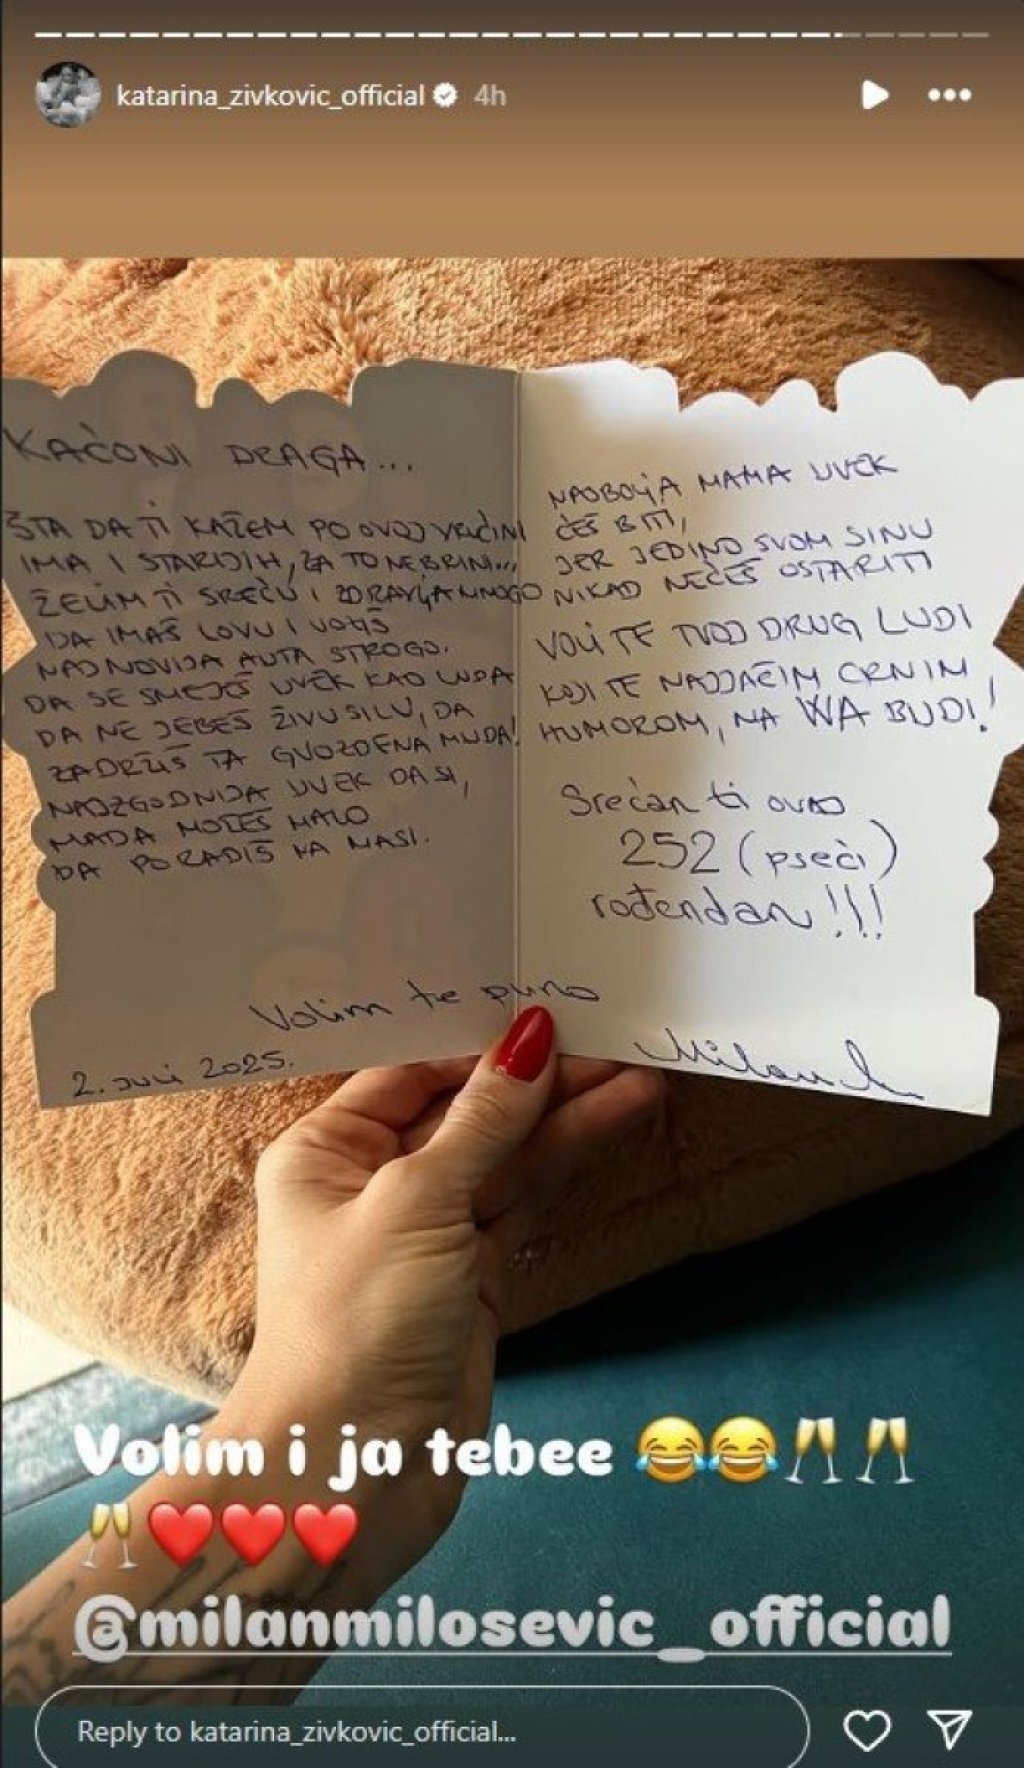 katarina_zivkovic_official 4h
KAĆONI DRAGA...
ŠTA DA TI KAŽEM PO OVOJ VRUĆINI
IMA I STARIJIH, ZA TO NE BRINI...
ŽELIM TI SREĆU I ZDRAVLJA MNOGO
DA IMAŠ LOVU I VOZIŠ
NAJNOVIJA AUTA STROGO.
DA SE SMEJEŠ UVEK KAO LUDA
DA NE JEBEŠ ŽIVU SILU, DA
ZADRŽIŠ TA GVOZDENA MUDA!
NAJZGODNIJA UVEK DA SI,
MADA MOŽEŠ MALO
DA PORADIŠ NA MASI.
NAJBOLJA MAMA UVEK
ĆEŠ BITI,
JER JEDINO SVOM SINU
NIKAD NEĆEŠ OSTARITI
VOLI TE TVOJ DRUG LUDI
KOJI TE NADJAČIM CRNIM
HUMOROM, MA WA BUDI!
Srećan ti ovaj
252 (pseći)
rođendan!!!
Volim te puno
2. Juli 2025.
Milan
Volim i ja tebee 😂😂🥂🥂
🥂❤️❤️❤️
@milanmilosevic_official
Reply to katarina_zivkovic_official...